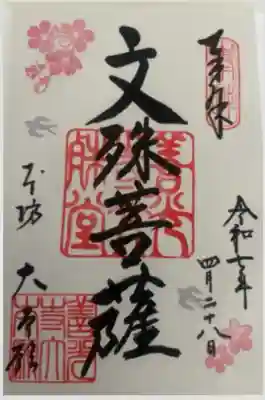 奉拝
令和七年
四月二十八日
文殊菩薩
本坊 大本願